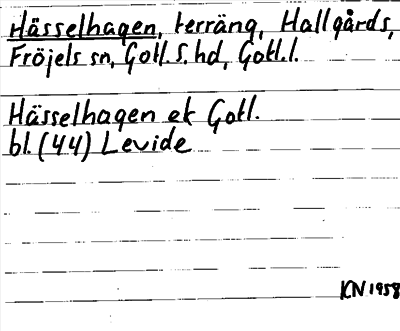 Hässelhagen, terräng, Hallgårds,
Fröjels sn, Gotl. S. hd, Gotl. l.
Hässelhagen ek Gotl.
bl. (44) Levide
KN 1958